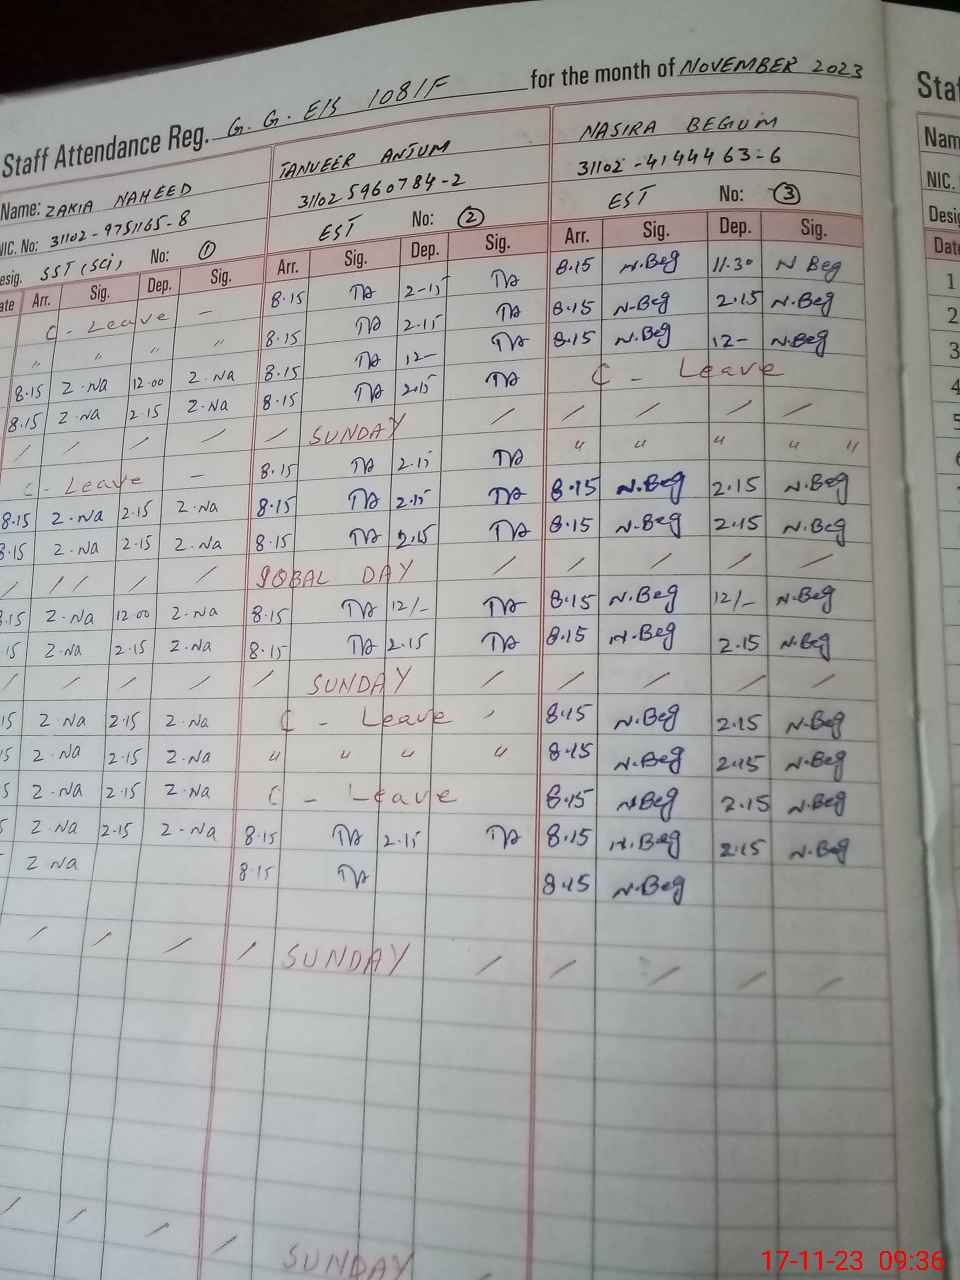 Staff Attendance Reg. G. G. E/S 108/F for the month of NOVEMBER 2023
Name: ZAKIA NAHEED TANVEER ANJUM NASIRA BEGUM
NIC. No: 31102-9751165-8 31102 5960784-2 31102-4144463-6
Desig. SST (SCi) No: 1 EST No: 2 EST No: 3
Date Arr. Sig. Dep. Sig. Arr. Sig. Dep. Sig. Arr. Sig. Dep. Sig.
C - Leave - 8.15 TA 2-15 TA 8.15 N.Beg 11.30 N Beg
" " " " 8.15 TA 2.15 TA 8.15 N-Beg 2.15 N.Beg
8.15 Z.Na 12.00 Z.Na 8.15 TA 12- TA 8.15 N.Beg 12- N.Beg
8.15 Z-Na 2.15 Z-Na 8.15 TA 2.15 TA C - Leave
/ / / / / SUNDAY / / / / /
C - Leave - 8.15 TA 2.15 TA " " " " "
8.15 Z.Na 2.15 Z.Na 8.15 TA 2.15 TA 8.15 N.Beg 2.15 N.Beg
8.15 Z.Na 2.15 Z.Na 8.15 TA 2.15 TA 8.15 N.Beg 2.15 N.Beg
/ / / / / IQBAL DAY / / / / /
8.15 Z.Na 12 00 Z.Na 8.15 TA 12/- TA 8.15 N.Beg 12/- N.Beg
15 Z.Na 2.15 Z.Na 8.15 TA 2.15 TA 8.15 N.Beg 2.15 N.Beg
/ / / / / SUNDAY / / / / /
15 Z.Na 2.15 Z.Na C - Leave - 8.15 N.Beg 2.15 N.Beg
5 Z.Na 2.15 Z.Na " " " " 8.15 N.Beg 2.15 N.Beg
5 Z.Na 2.15 Z.Na C - Leave 8.15 N.Beg 2.15 N.Beg
Z.Na 2.15 Z-Na 8.15 TA 2.15 TA 8.15 N.Beg 2.15 N.Beg
Z Na 8.15 TA 8.15 N.Beg
/ / / / SUNDAY / / / / /
/ / / / SUNDAY
Sta
Nam
NIC.
Desig
Date
1
2
3
4
5
6
17-11-23 09:36